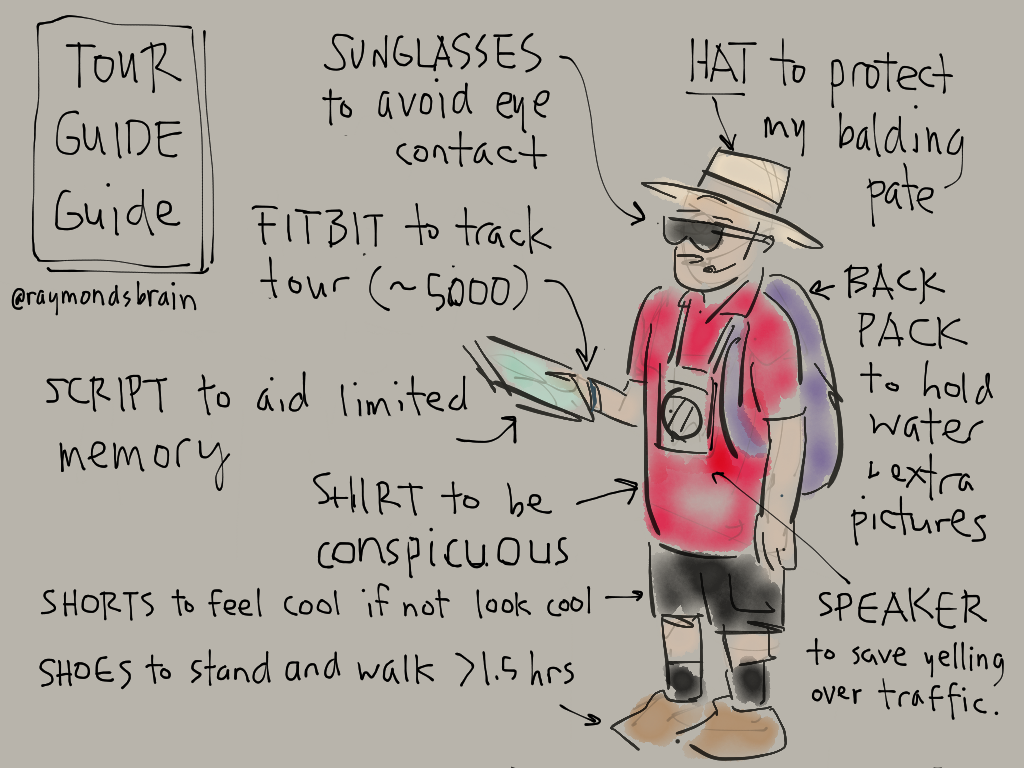 TOUR
GUIDE
Guide
@raymondsbrain
SUNGLASSES
to avoid eye
contact
HAT to protect
my balding
pate
FITBIT to track
tour (~5000)
BACK
PACK
to hold
water
& extra
pictures
SCRIPT to aid limited
memory
SHIRT to be
conspicuous
SHORTS to feel cool if not look cool
SHOES to stand and walk >1.5 hrs
SPEAKER
to save yelling
over traffic.